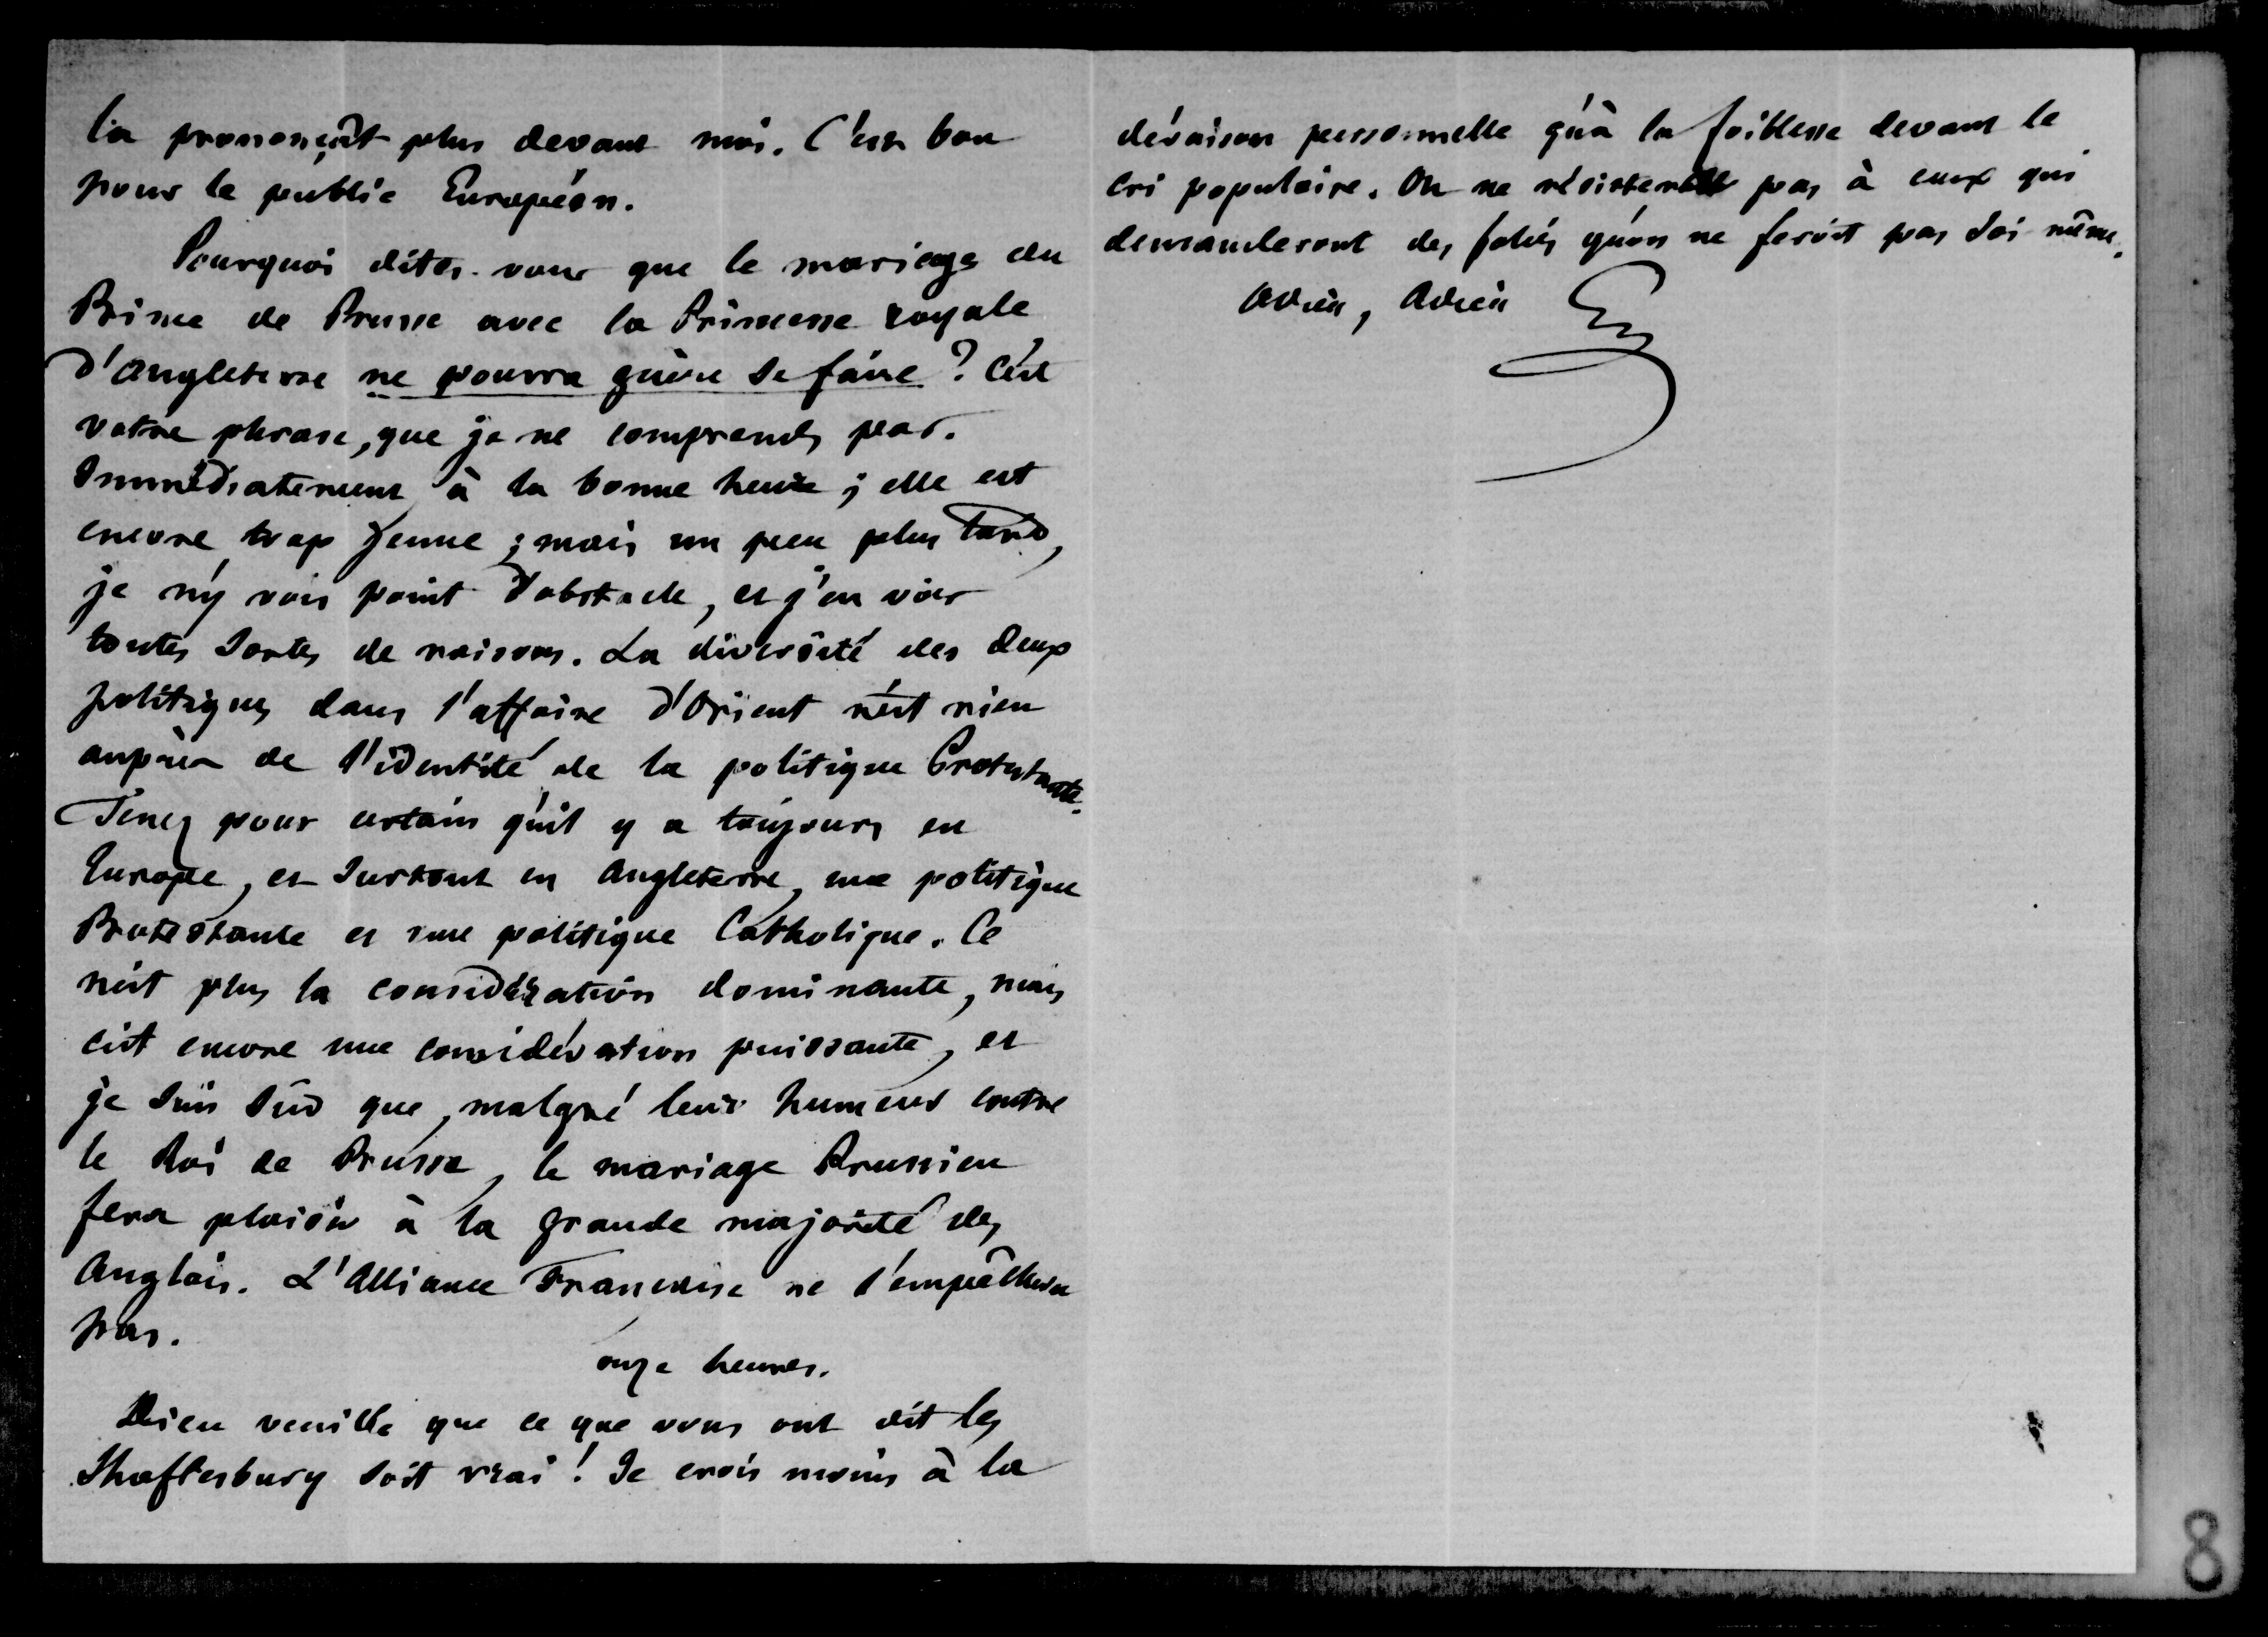 la prononçât plus devant moi. C'est bon
pour le public Européen.
Pourquoi dites-vous que le mariage du
Prince de Prusse avec la Princesse royale
d'Angleterre ne pourra guère se faire ? C'est
votre phrase, que je ne comprends pas.
Immédiatement à la bonne heure ; elle est
encore trop jeune ; mais un peu plus tard,
je n'y vois point d'obstacle, et j'en vois
toutes sortes de raisons. La diversité des deux
politiques dans l'affaire d'Orient n'est rien
auprès de l'identité de la politique Protestante.
Tenez pour certain qu'il y a toujours en
Europe, et surtout en Angleterre, une politique
Protestante et une politique Catholique. Ce
n'est plus la considération dominante, mais
c'est encore une considération puissante, et
je suis sûr que, malgré leur humeur contre
le Roi de Prusse, le mariage Prussien
fera plaisir à la grande majorité des
Anglais. L'Alliance Française ne l'empêchera
pas.
onze heures.
Dieu veuille que ce que vous ont dit les
Shaftesbury soit vrai ! Je crois moins à la
déraison personnelle qu'à la foiblesse devant le
cri populaire. On ne résistera pas à ceux qui
demanderont des folies qu'on ne feroit pas soi même.
Adieu, Adieu
8